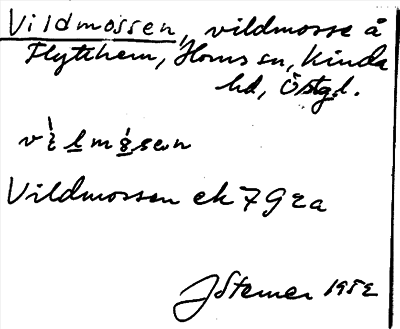 Vildmossen, vildmosse å
Flytthem, Horns sn, Kinda
hd, Östgl.
Vildmossen ek 7 G 2a
JSterner 1952